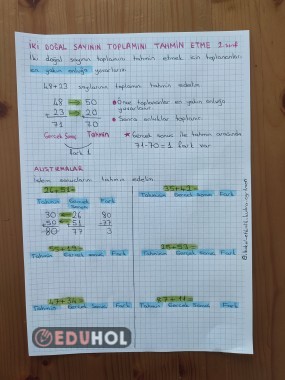 İKİ DOĞAL SAYININ TOPLAMINI TAHMİN ETME 2. sınıf
İki doğal sayının toplamını tahmin etmek için toplananları
en yakın onluğa yuvarlarız.
48+23 sayılarının toplamını tahmin edelim
48 → 50
+ 23 → 20
71 70
Gerçek Sonuç Tahmin
Fark 1
• Önce toplananlar en yakın onluğa
yuvarlanır.
• Sonra onluklar toplanır.
* Gerçek sonuç ile tahmin arasında
71-70=1 fark var
ALIŞTIRMALAR
26+51=
Tahmin Gerçek Sonuç Fark
30 26 80
+50 +51 -77
80 77 3
35+43=
Tahmin Gerçek Sonuç Fark
55+19=
Tahmin Gerçek Sonuç Fark
Tahmin Gerçek Sonuç Fark
47+34=
Tahmin Gerçek Sonuç Fark
87+11=
Tahmin Gerçek Sonuç Fark
EDUHOL